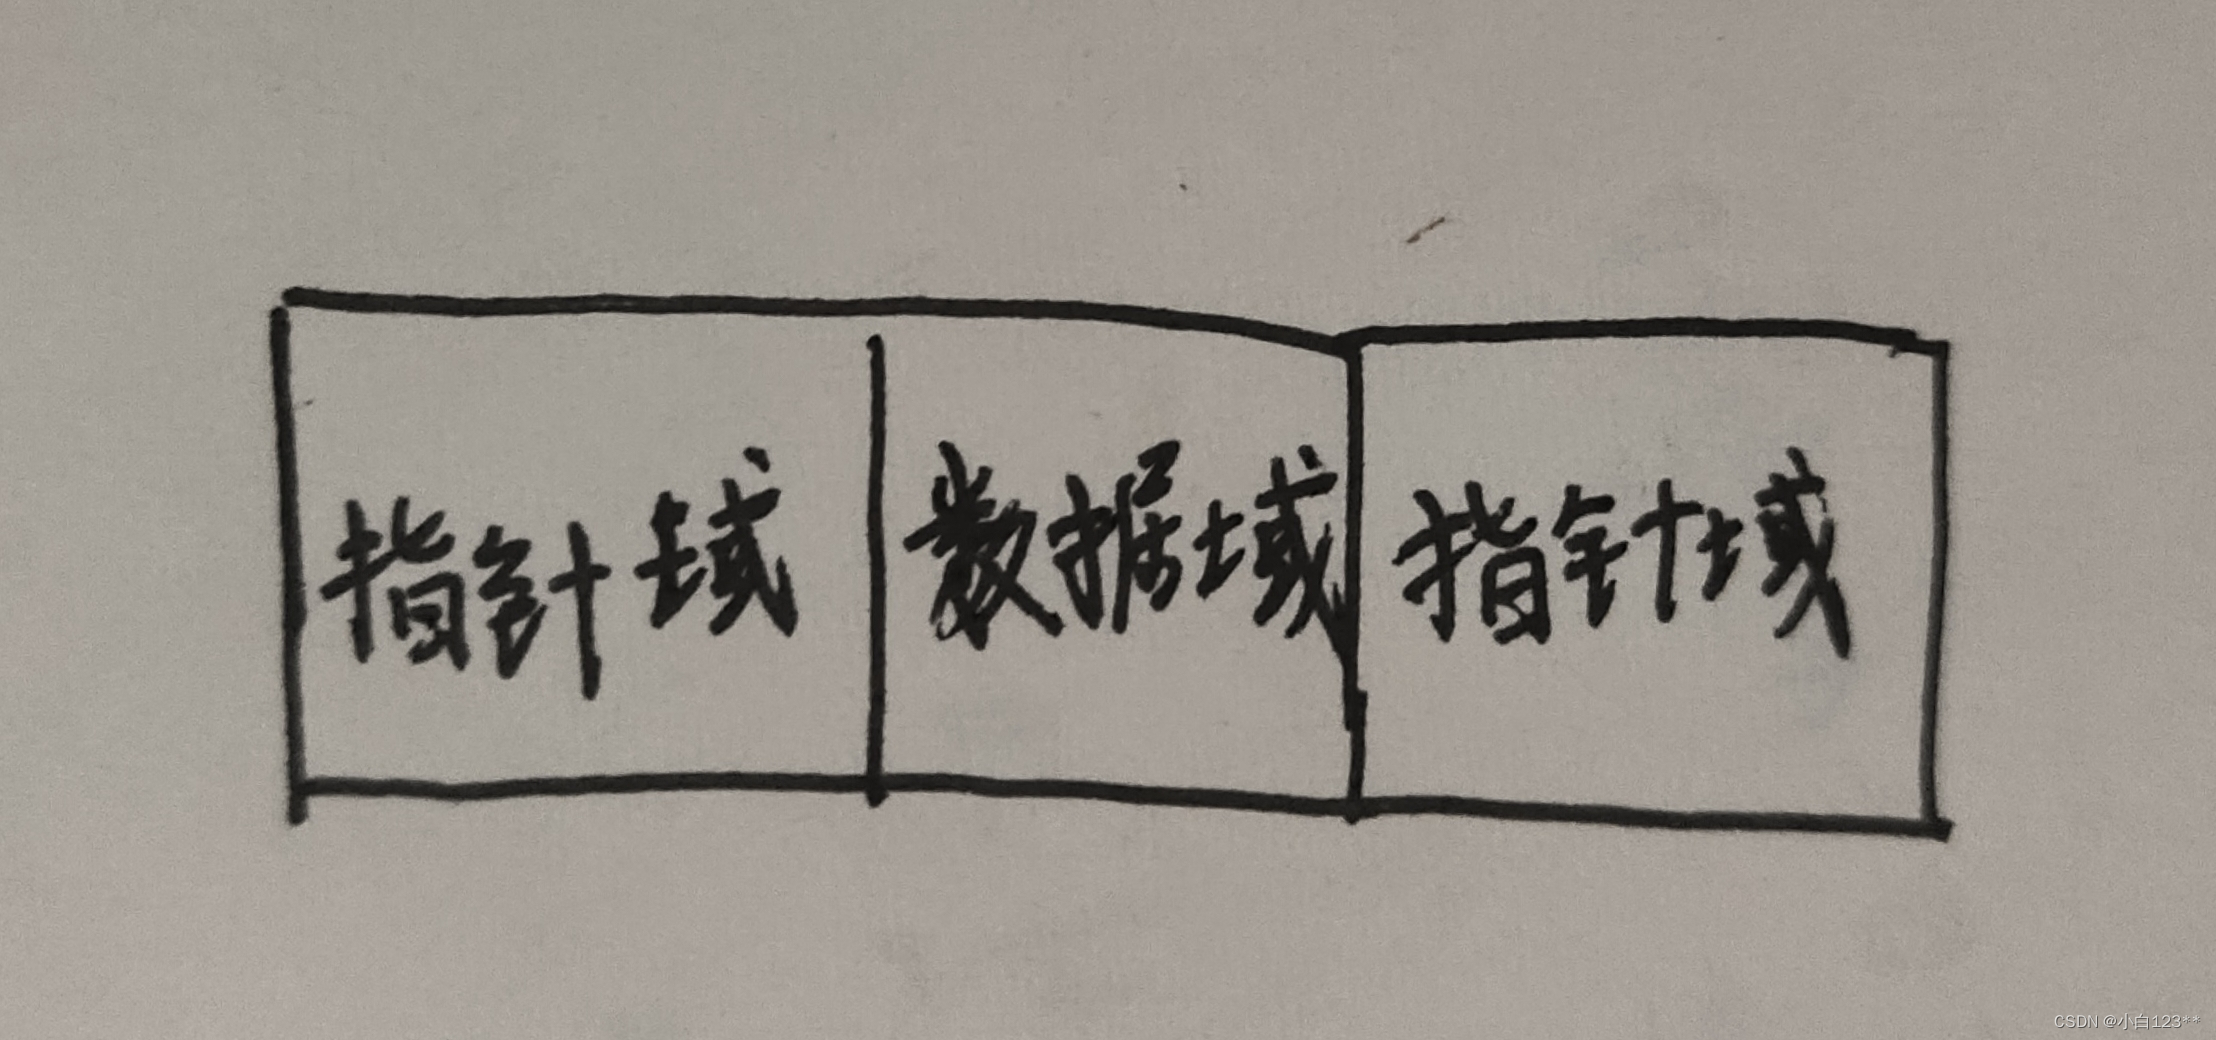 指针域 数据域 指针域
CSDN @小白123**